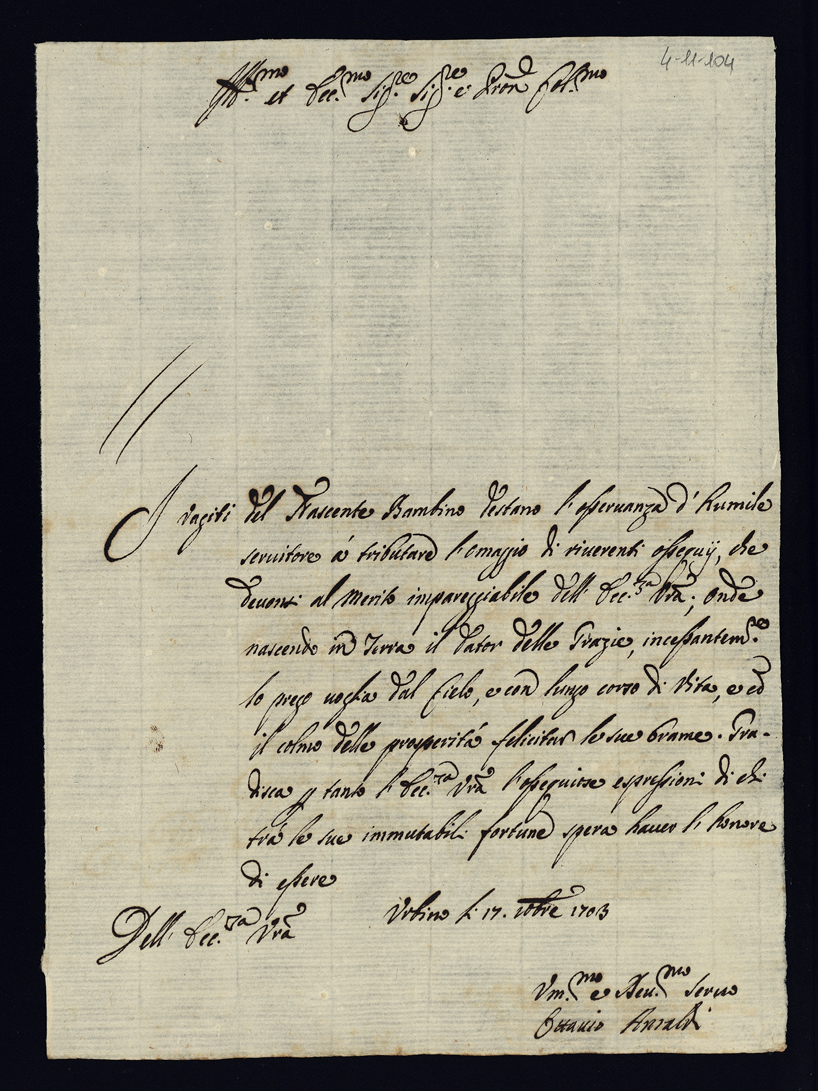 4-11-104
Ill.mo et Ecc.mo Sig.re Sig.re e Pron Col.mo
I vagiti del Nascente Bambino destano l'osseruanza d'humile
seruitore á tributare l'omaggio di riuerenti ossequij, che
deuonsi al Merito impareggiabile dell' Ecc.za Vra; onde
nascendo in Terra il Dator delle Grazie, incessantem.e
lo prego uoglia dal Cielo, e con lungo corso di Vita, e cō
il colmo delle prosperitá felicitar le sue brame. Gra-
disca p tanto l'Ecc.za Vra l'ossequiose espressioni di chi
trá le sue immutabili fortune spera hauer l'honore
di essere
Dell' Ecc.za Vra
Vrbino li 17. Xbre 1703
Vm.mo e Deu.mo Seruo
Ottauio